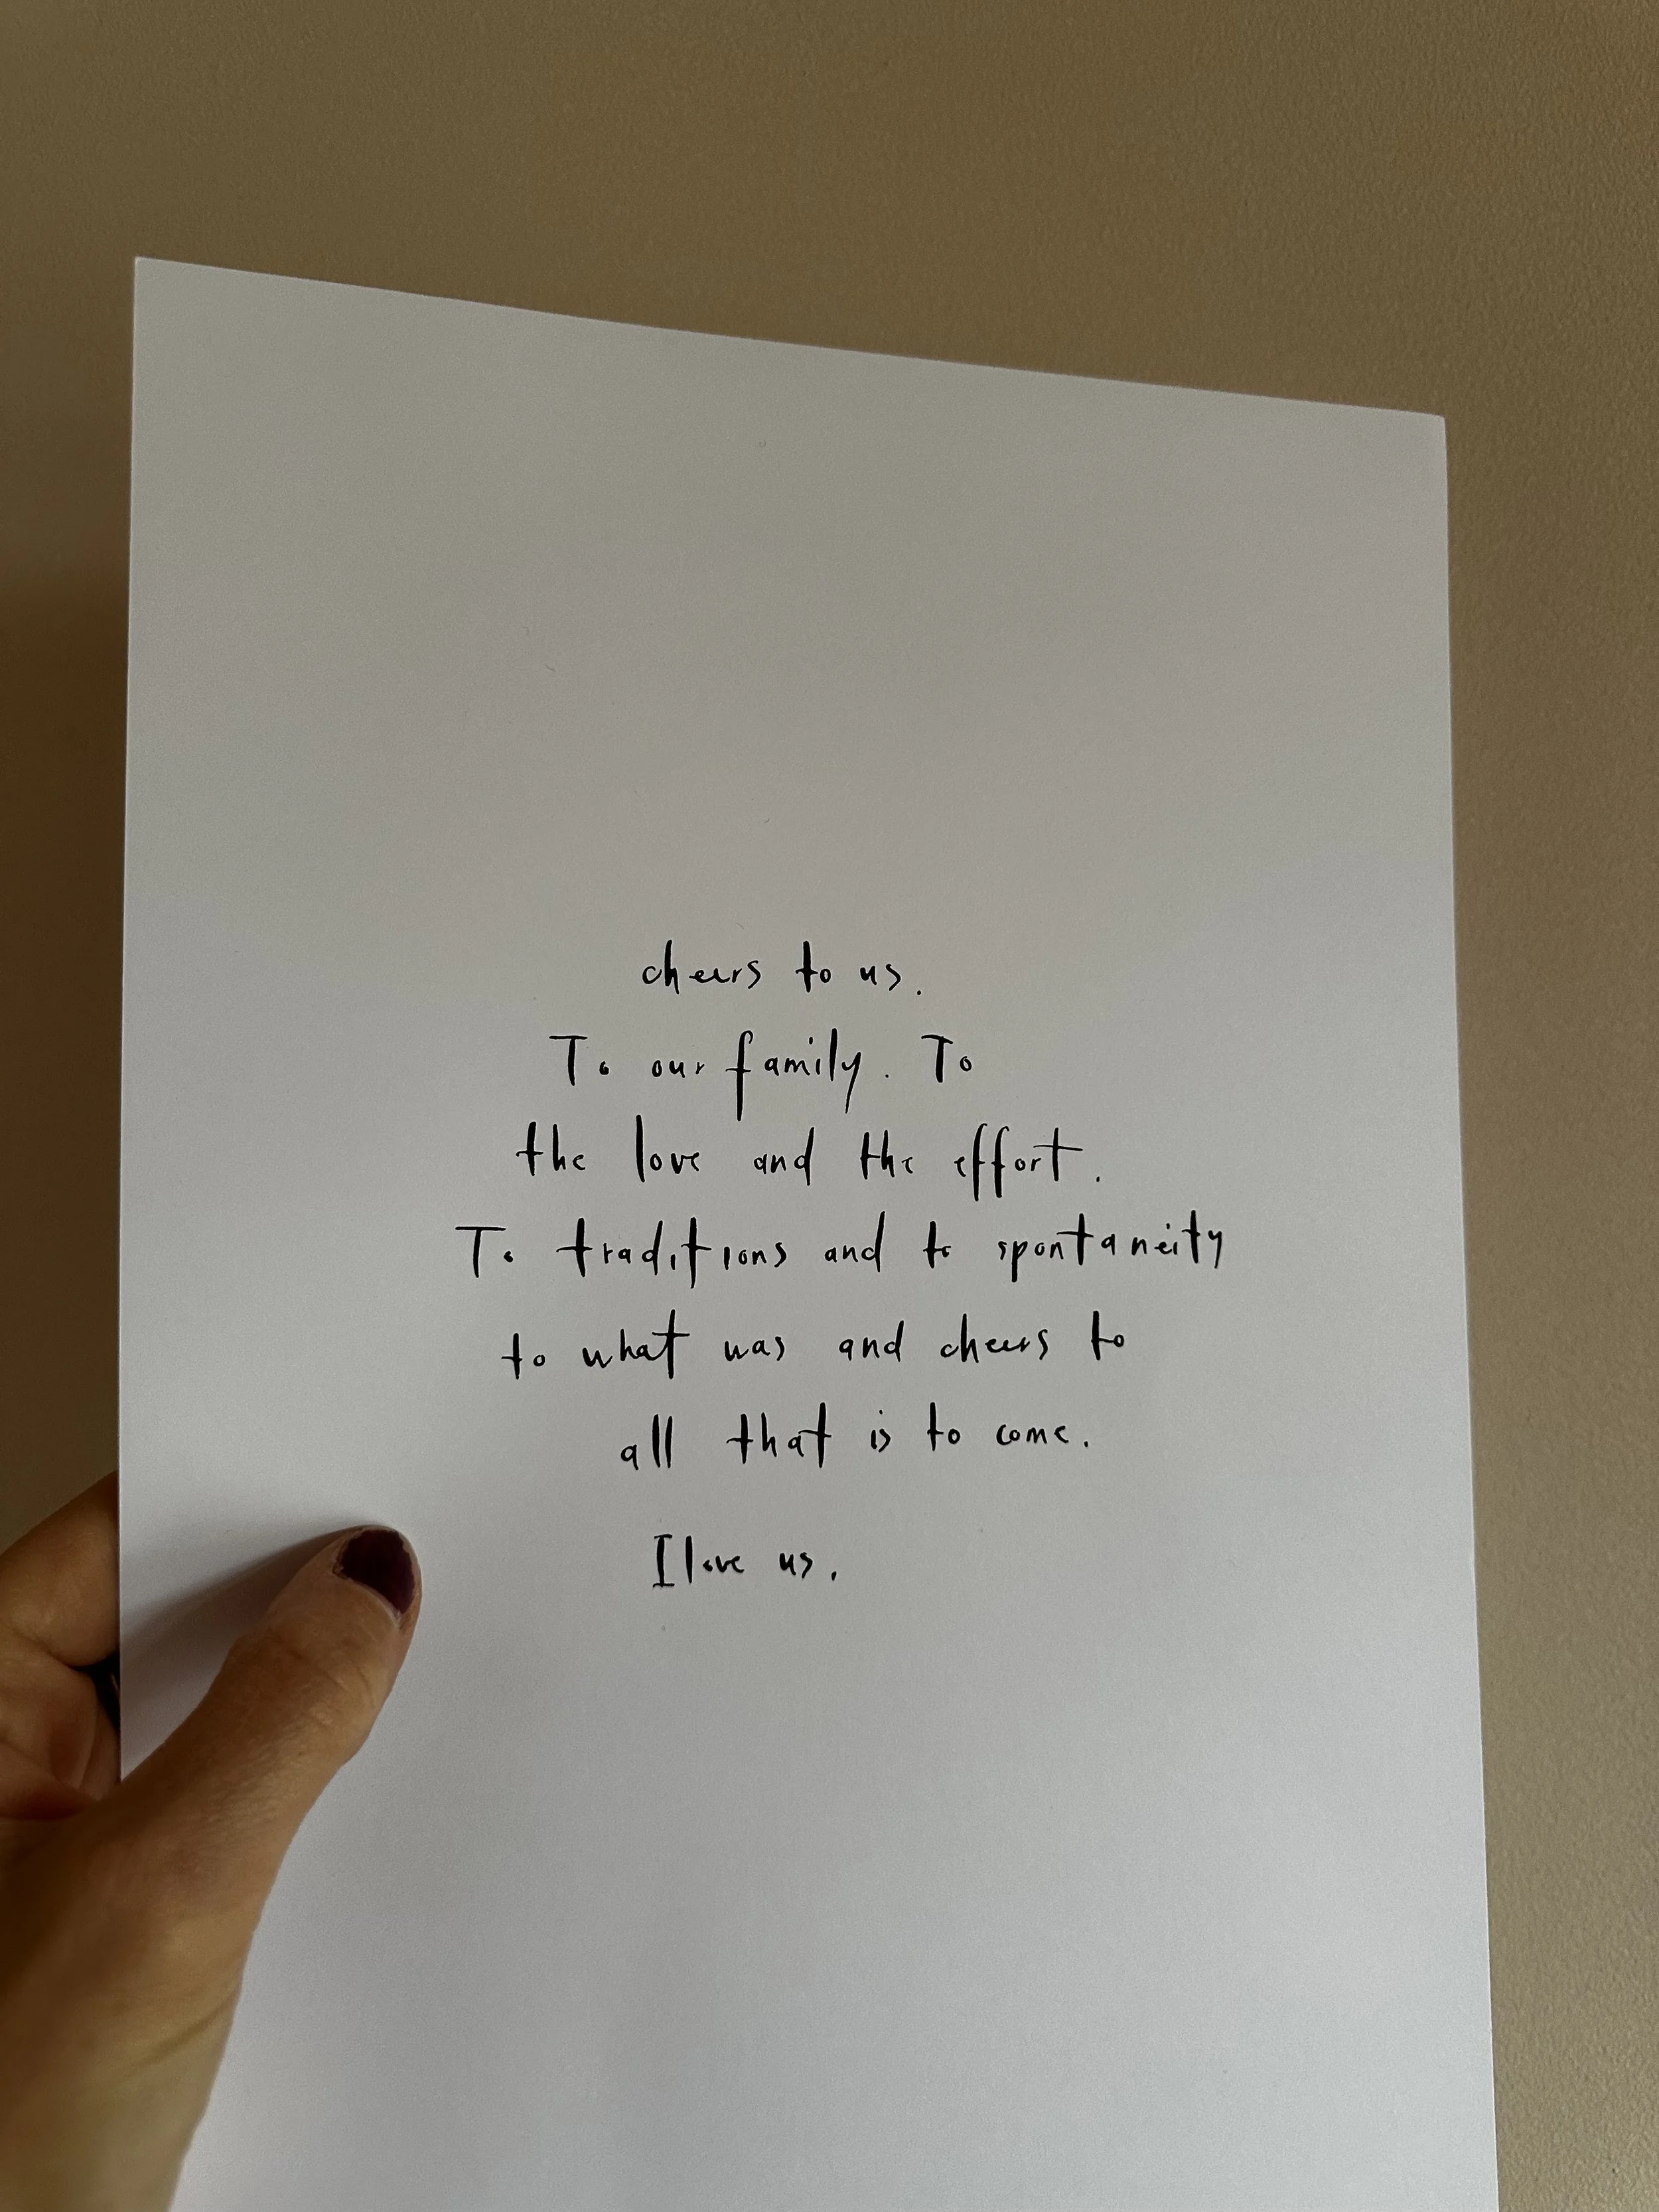 cheers to us.
To our family. To
the love and the effort.
To traditions and to spontaneity
to what was and cheers to
all that is to come.
I love us.